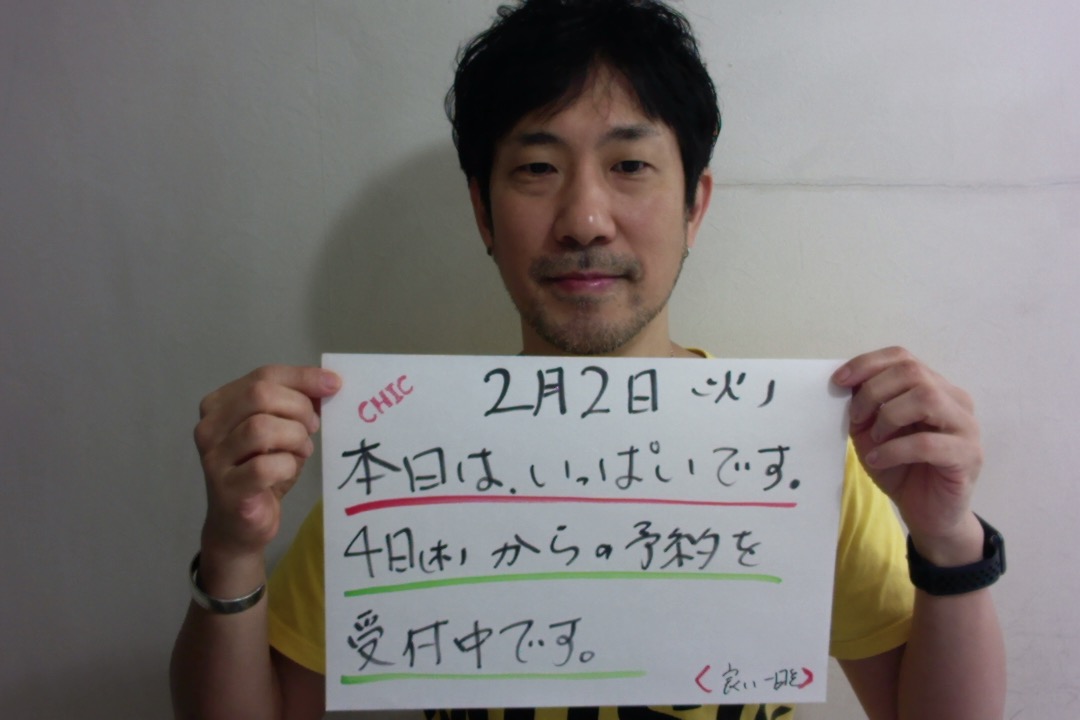 CHIC
2月2日(火)
本日は、いっぱいです。
4日(木)からの予約を
受付中です。
良い一日を